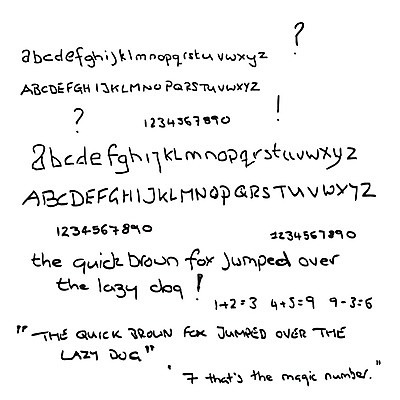 ?
abcdefghijklmnopqrstuvwxyz
ABCDEFGHIJKLMNOPQRSTUVWXYZ
? !
1234567890
abcdefghijklmnopqrstuvwxyz
ABCDEFGHIJKLMNOPQRSTUVWXYZ
1234567890 1234567890
the quick brown fox jumped over
the lazy dog !
1+2=3 4+5=9 9-3=6
"THE QUICK BROWN FOX JUMPED OVER THE
LAZY DOG"
"7 that's the magic number."